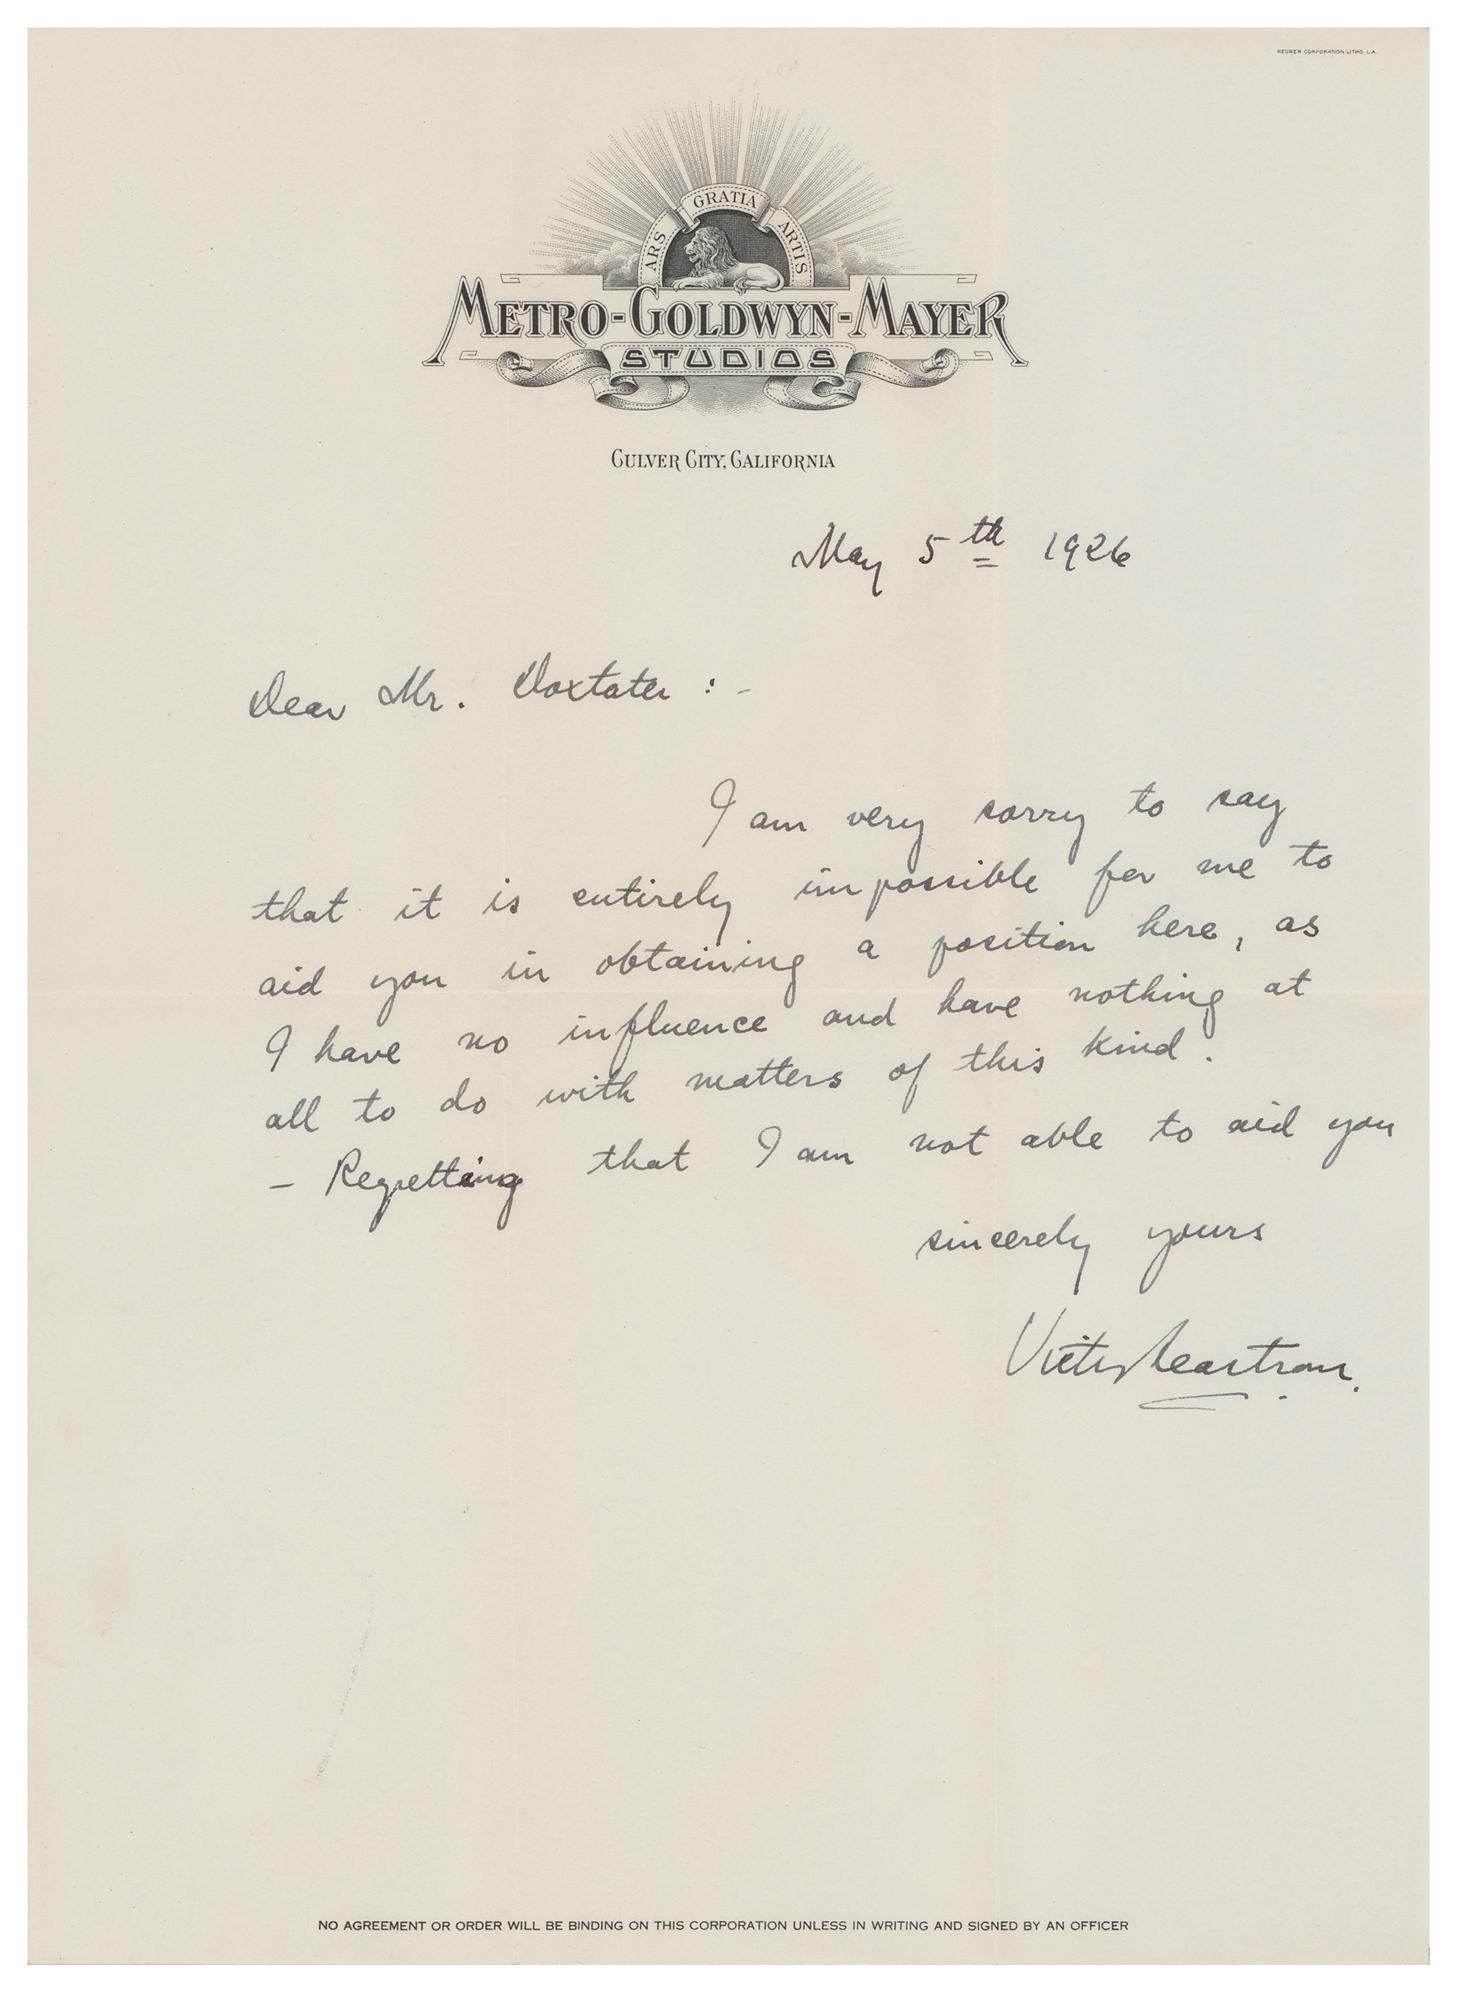 NEUNER CORPORATION LITHO. L.A.
ARS GRATIA ARTIS
METRO-GOLDWYN-MAYER
STUDIOS
CULVER CITY, CALIFORNIA
May 5th 1926
Dear Mr. Doxtater :-
I am very sorry to say
that it is entirely impossible for me to
aid you in obtaining a position here, as
I have no influence and have nothing at
all to do with matters of this kind.
- Regretting that I am not able to aid you
sincerely yours
Victor Seastrom.
NO AGREEMENT OR ORDER WILL BE BINDING ON THIS CORPORATION UNLESS IN WRITING AND SIGNED BY AN OFFICER